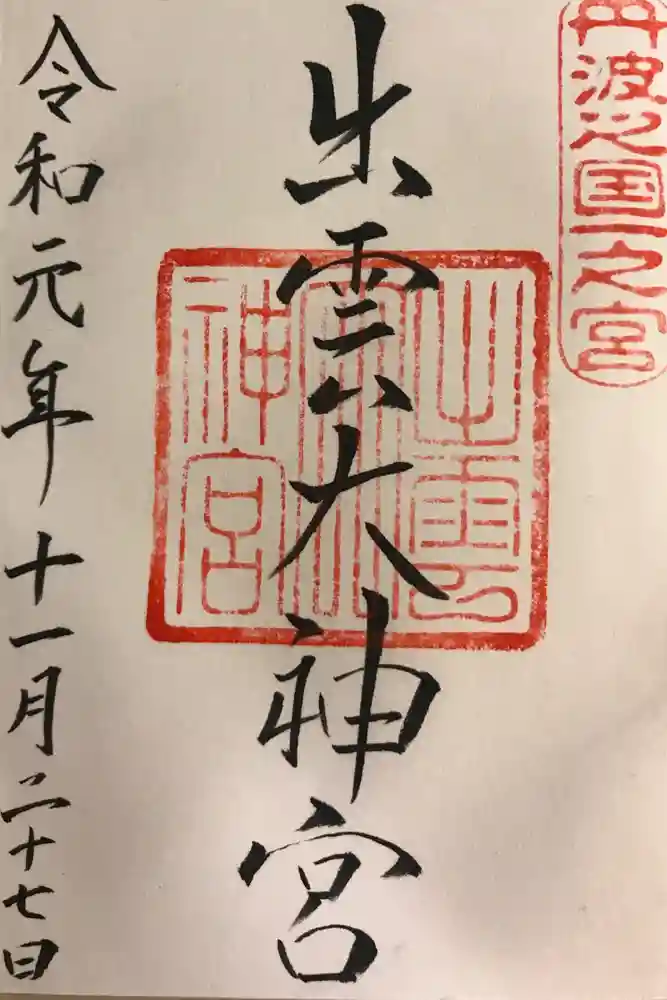 丹波之国一之宮
出雲大神宮
出雲大神宮
令和元年十一月二十七日